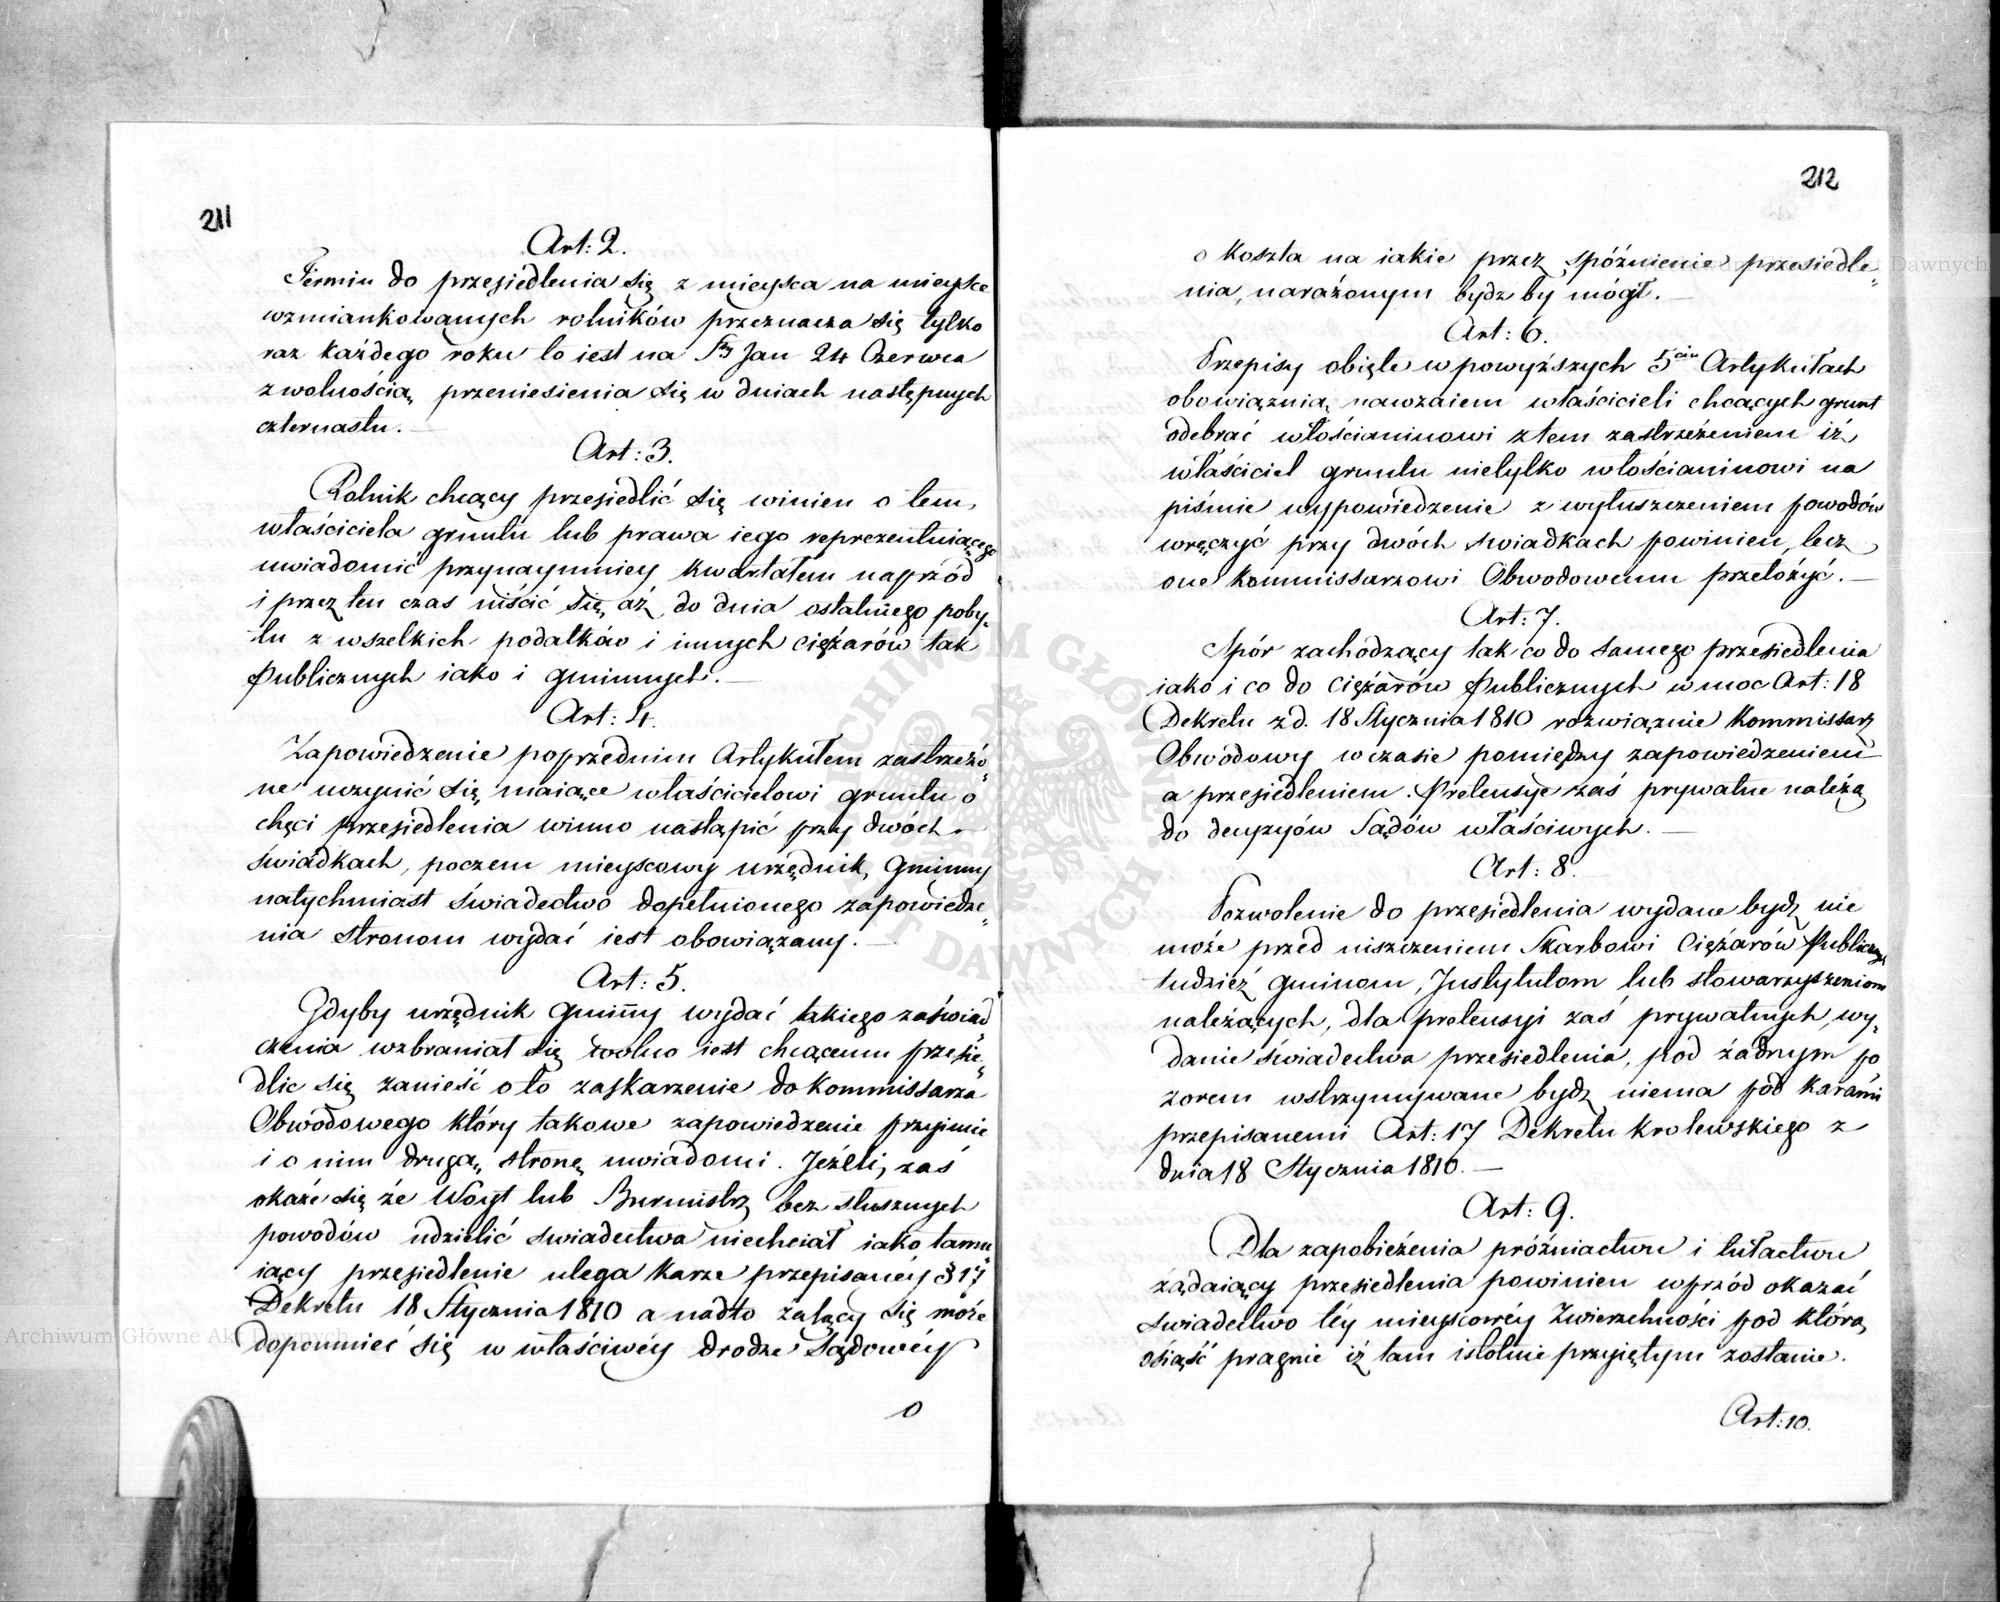 211
Art: 2.
Termin do przesiedlenia się z mieysca na mieysce
wzmiankowanych rolników przeznacza się tylko
raz każdego roku to iest na Sty Jan 24 Czerwca
z wolnością przeniesienia się w dniach następnych
czternastu. —
Art: 3.
Rolnik chcący przesiedlić się winien o tem
właściciela gruntu lub prawa iego reprezentuiącego
uwiadomić przynaymniey kwartałem naprzód
i przez ten czas uiścić się aż do dnia ostatniego poby„
tu z wszelkich podatków i innych ciężarów tak
Publicznych iako i gminnych. —
Art: 4.
Zapowiedzenie poprzednim Artykułem zastrzeżo„
ne uczynić się maiące właścicielowi gruntu o
chęci przesiedlenia winno nastąpić przy dwóch
świadkach, poczem mieyscowy urzędnik Gminny
natychmiast świadectwo dopełnionego zapowiedze„
nia stronom wydać iest obowiązany. —
Art: 5.
Gdyby urzędnik Gminny wydać takiego zaświad„
czenia wzbraniał się wolno iest chcącemu przesie„
dlic się zanieść o to zaskarzenie do Kommissarza
Obwodowego który takowe zapowiedzenie przyimie
i o nim drugą stronę uwiadomi. Jeżeli zas
okaże się że Woyt lub Burmistrz bez słusznych
powodów udzielić swiadectwa niechciał iako tamu„
iący przesiedlenie ulega karze przepisanéy § 17
Dekretu 18 Stycznia 1810 a nadto żalący się może
dopomnieć się w właściwéy drodze Sądowéy
o
212
o koszta na iakie przez spóźnienie przesiedle„
nia, narażonym bydz by mógł. —
Art: 6.
Przepisy obięte w powyższych 5ciu Artykułach
obowiąznią nawzaiem właścicieli chcących grunt
odebrać włościaninowi z tem zastrzeżeniem iż
właściciel gruntu nietylko włościaninowi na
piśmie wypowiedzenie z wyłuszczeniem powodów
wręczyć przy dwóch swiadkach powinien, lecz
one Kommissarzowi Obwodowemu przełożyć. —
Art: 7.
Spór zachodzący tak co do samego przesiedlenia
iako i co do ciężarów Publicznych w moc Art: 18
Dekretu z d. 18 Stycznia 1810 rozwiąznie Kommissarz
Obwodowy w czasie pomiędzy zapowiedzeniem
a przesiedleniem. Pretensye zaś prywatne należą
do decyzyów Sądów właściwych. —
Art: 8.
Pozwolenie do przesiedlenia wydane bydz nie
może przed niszczeniem Skarbowi Ciężarów Publicznych
tudzież gminom, Instytutom lub stowarzyszeniom
należących, dla pretensyi zaś prywatnych, wy„
danie świadectwa przesiedlenia, pod żadnym po
zorem wstrzymywane bydz niema pod karami
przepisanemi Art: 17 Dekretu Krolewskiego z
dnia 18 Stycznia 1810. —
Art: 9.
Dla zapobieżenia próżniactwu i tułactwu
żądaiący przesiedlenia powinien wprzód okazać
swiadectwo téy mieyscowéy Zwierzchności pod którą
osiąść pragnie iż tam istotnie przyiętym zostanie.
Art: 10.
Archiwum Główne Akt Dawnych
ARCHIWUM GŁÓWNE AKT DAWNYCH